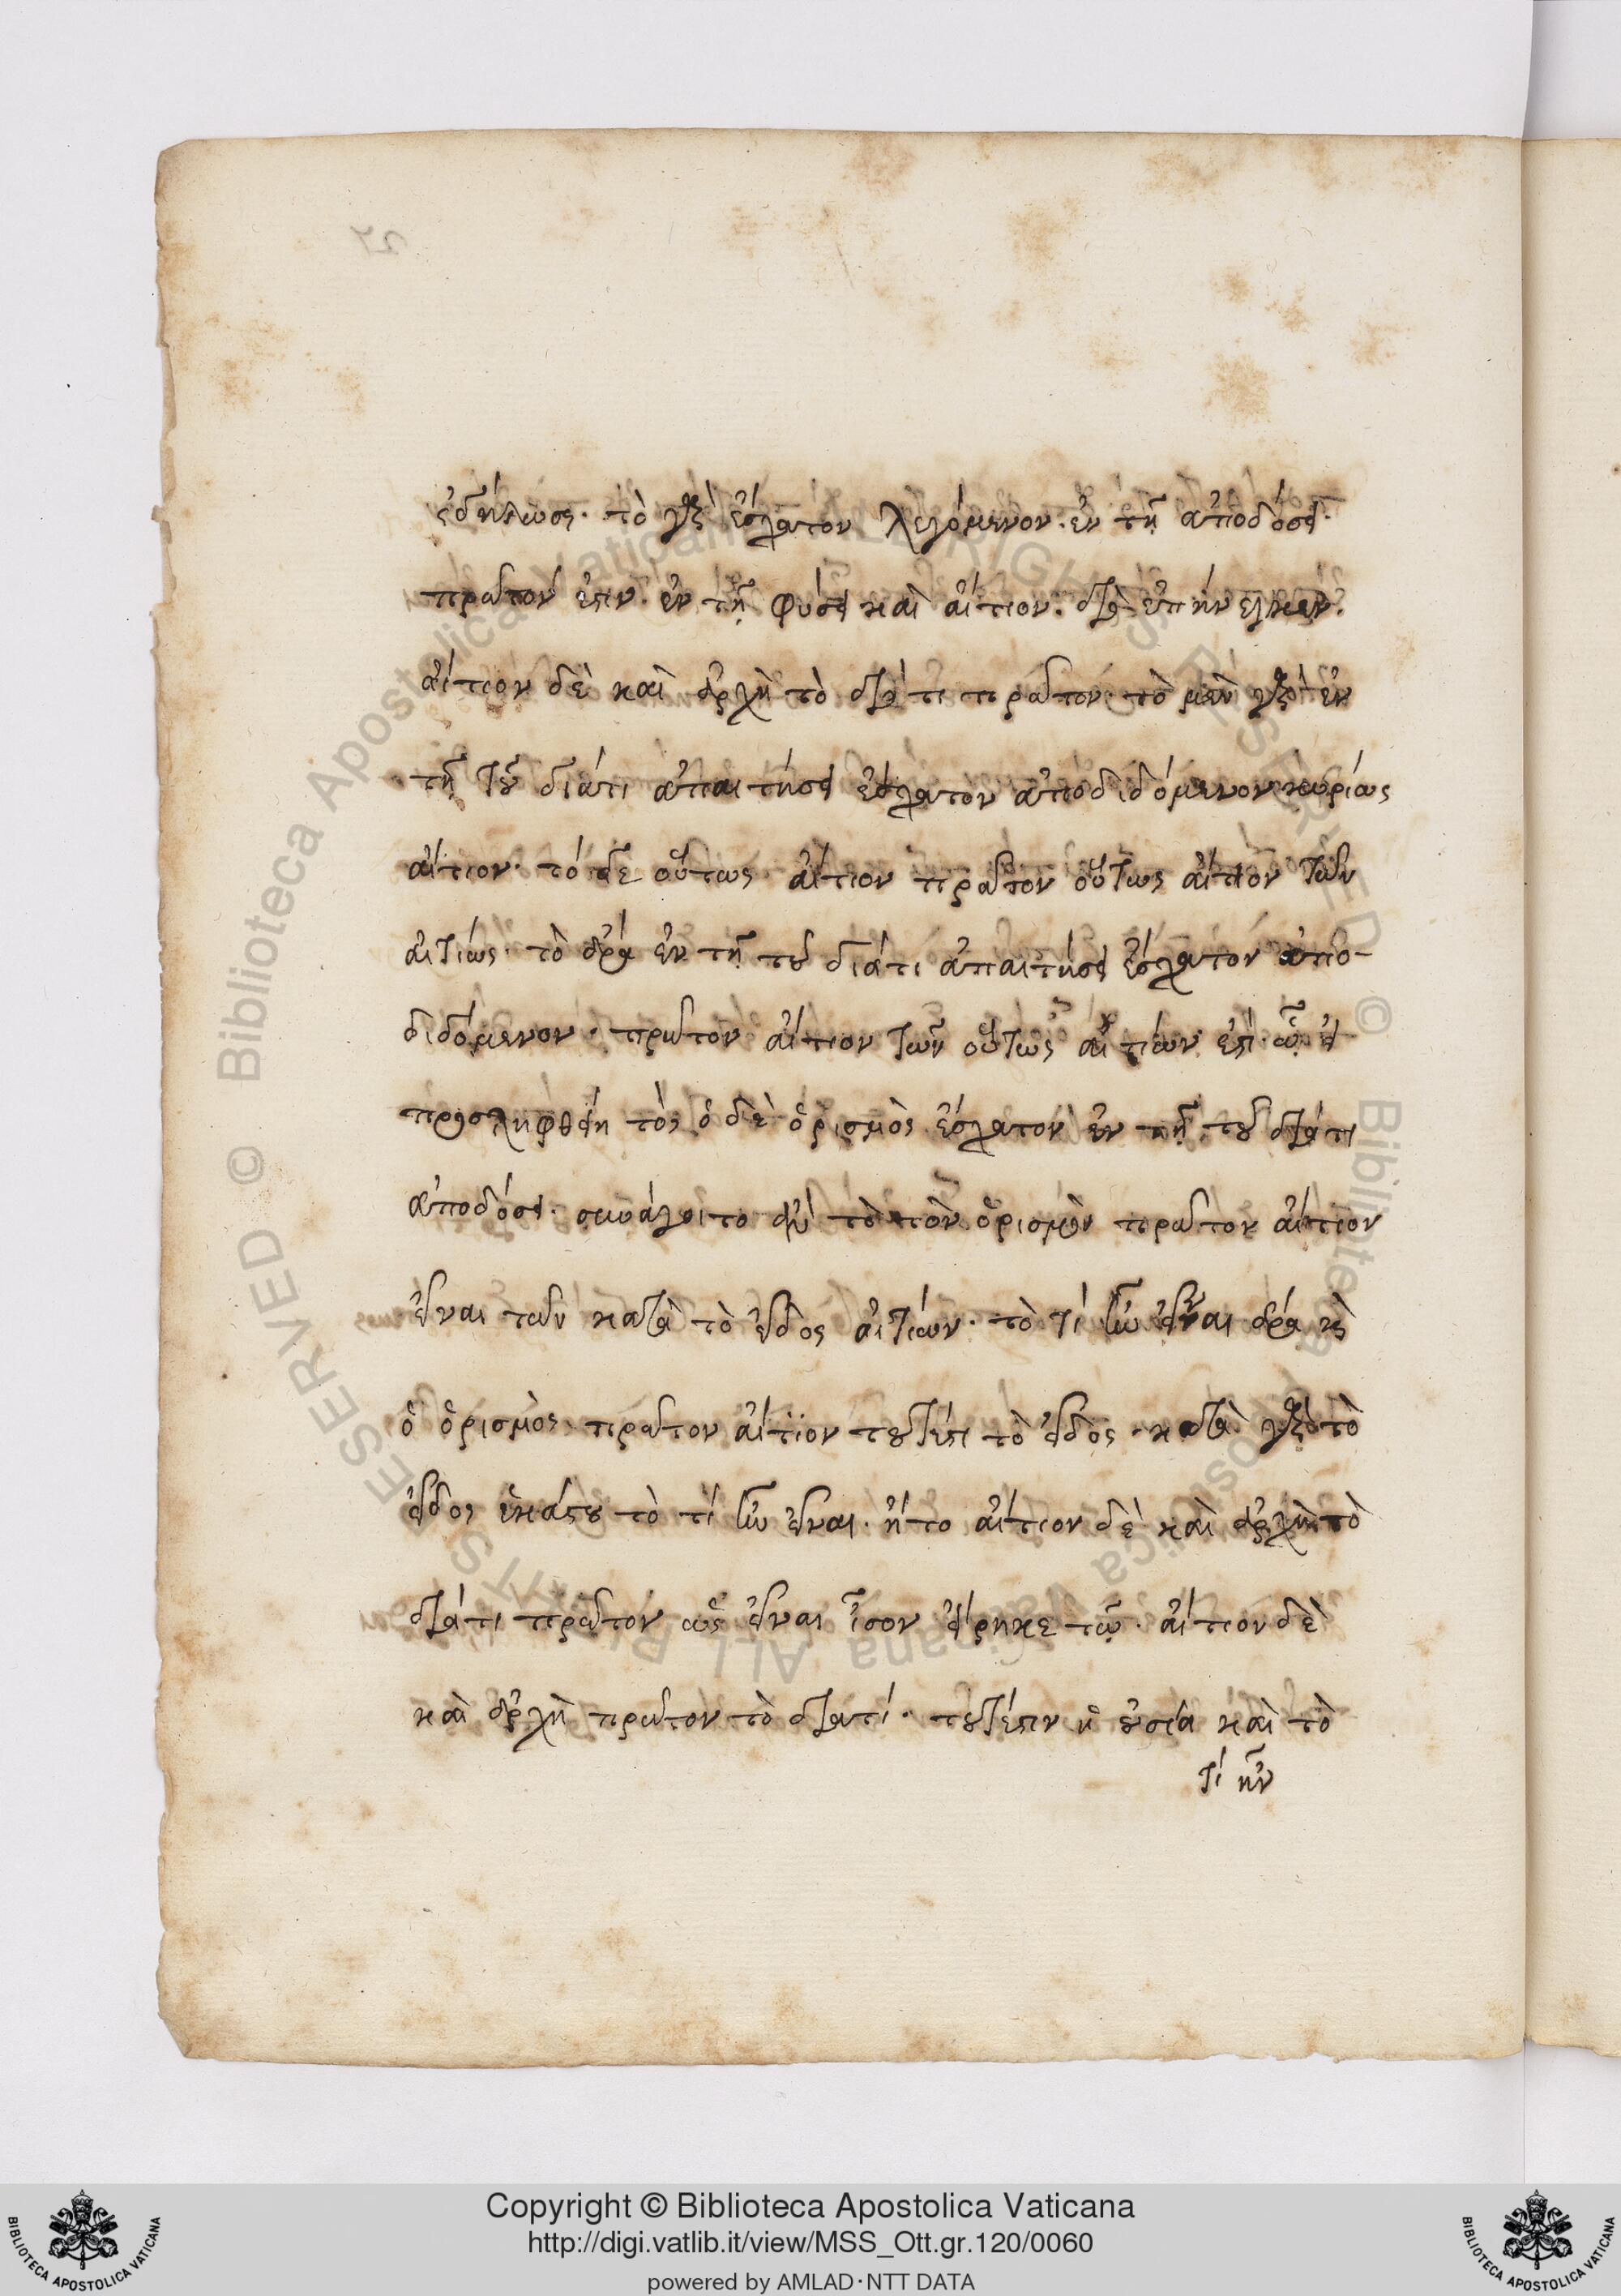 ἐδήλωσε. τὸ γὰρ ἔσχατον λεγόμενον. ἐν τῇ ἀποδόσει.
πρῶτόν ἐστιν. ἐν τῇ φύσει καὶ αἴτιον. διὸ ἐπήνεγκεν.
αἴτιον δὲ καὶ ἀρχὴ τὸ διάτι πρῶτον. τὸ μὲν γὰρ ἐν
τῇ τοῦ διάτι ἀπαιτήσει ἔσχατον ἀποδιδόμενον κυρίως
αἴτιον. τό δε οὕτως αἴτιον πρῶτον οὕτως αἴτιον τῶν
αἰτίων. τὸ ἄρα ἐν τῇ τοῦ διάτι ἀπαιτήσει ἔσχατον ἀπο-
διδόμενον. πρῶτον αἴτιον τῶν οὕτως αἰτίων ἐστὶ. ᾧ εἰ
προσληφθείη τὸς ὁ δὲ ὁρισμὸς ἔσχατον ἐν τῇ τοῦ διάτι
ἀποδόσει. συνάγοιτο ἂν τὸ τὸν ὁρισμὸν πρῶτον αἴτιον
εἶναι τῶν κατὰ τὸ εἶδος αἰτίων. τὸ τί ἦν εἶναι ἄρα καὶ
ὁ ὁρισμὸς πρῶτον αἴτιον τουτέστι τὸ εἶδος. κατὰ γὰρ τὸ
εἶδος ἑκάστου τὸ τί ἦν εἶναι. ἢ τὸ αἴτιον δὲ καὶ ἀρχὴ τὸ
διάτι πρῶτον ὡς εἶναι ἴσον εἴρηκε τῷ. αἴτιον δὲ
καὶ ἀρχὴ πρῶτον τὸ διατί. τουτέστιν ἡ οὐσία καὶ τὸ
τί ἦν
Copyright © Biblioteca Apostolica Vaticana
http://digi.vatlib.it/view/MSS_Ott.gr.120/0060
powered by AMLAD·NTT DATA
BIBLIOTECA APOSTOLICA VATICANA
BIBLIOTECA APOSTOLICA VATICANA